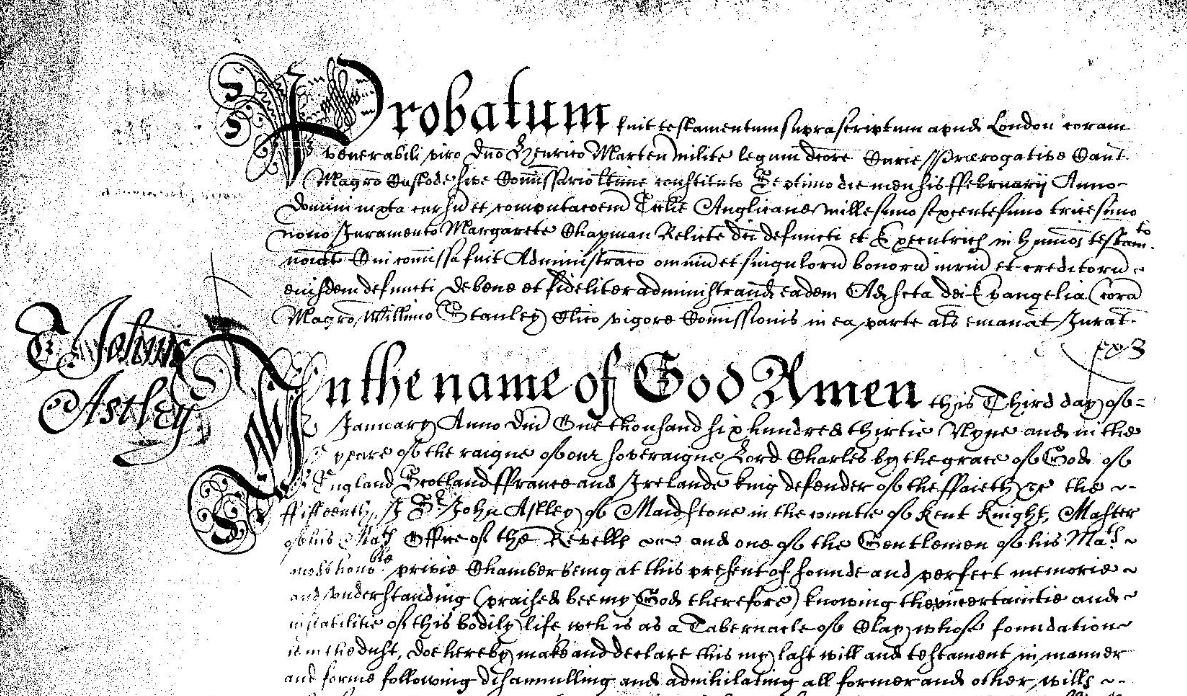 Probatum fuit testamentum suprascriptum apud London coram
venerabili viro Dno Henrico Marten milite legum dcore Curie Prærogative Cant.
Magro Custode sive Comissario ltime constituto Septimo die mensis ffebruarij Anno
Domini iuxta cursu et computacoem Ecclie Anglicane millesimo sexcentesimo tricesimo
nono Juramento Margarete Chapman Relicte dci defuncti et Executricis in hmoi testamto
noiat Cui comissa fuit Administraco omniu et singuloru bonoru iuriu et creditoru
eiusdem defuncti De bene et fideliter administrand eadem Ad scta dei Evangelia Cora
Magro Willimo Stanley Clico vigore Comissionis in ea parte als emanat Jurat.
ex 3
T Johnis
Astley
In the name of God Amen this Third day of
January Anno Dni One thousand six hundred thirtie Nyne and in the
yeare of the raigne of our soveraigne Lord Charles by the grace of God of
England Scotland ffrance and Irelande king defender of the ffaieth &c the
fifteenth, I Sr John Astley of Maidstone in the countie of Kent Knight, Master
of his Mats Office of the Revells and one of the Gentlemen of his Mats
most honoble privie Chamber being at this present of sounde and perfect memorie
and understanding (praised bee my God therefore) knowing the uncertaintie and
instabilitie of this bodily life, wch is as a Tabernacle of Clay whose foundation
is in the dust, doe hereby make and declare this my last will and testament in manner
and forme following disannulling and adnihilating all former and other wills